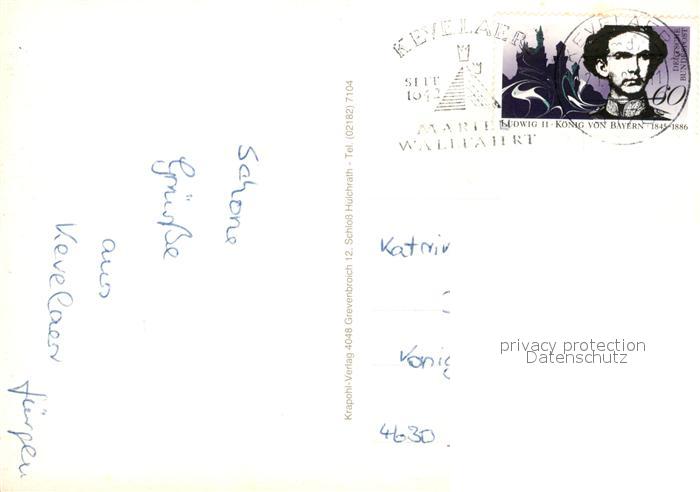 Schöne
Grüße
aus
Kevelaer
Jürgen
Krapohl-Verlag 4048 Grevenbroich 12. Schloß Hülchrath - Tel. (02182) 7104
KEVELAER
SEIT
1642
MARIEN
WALLFAHRT
KEVELAER
DEUTSCHE
BUNDESPOST
60
LUDWIG II · KÖNIG VON BAYERN · 1845-1886
Katrin
König
4630
privacy protection
Datenschutz